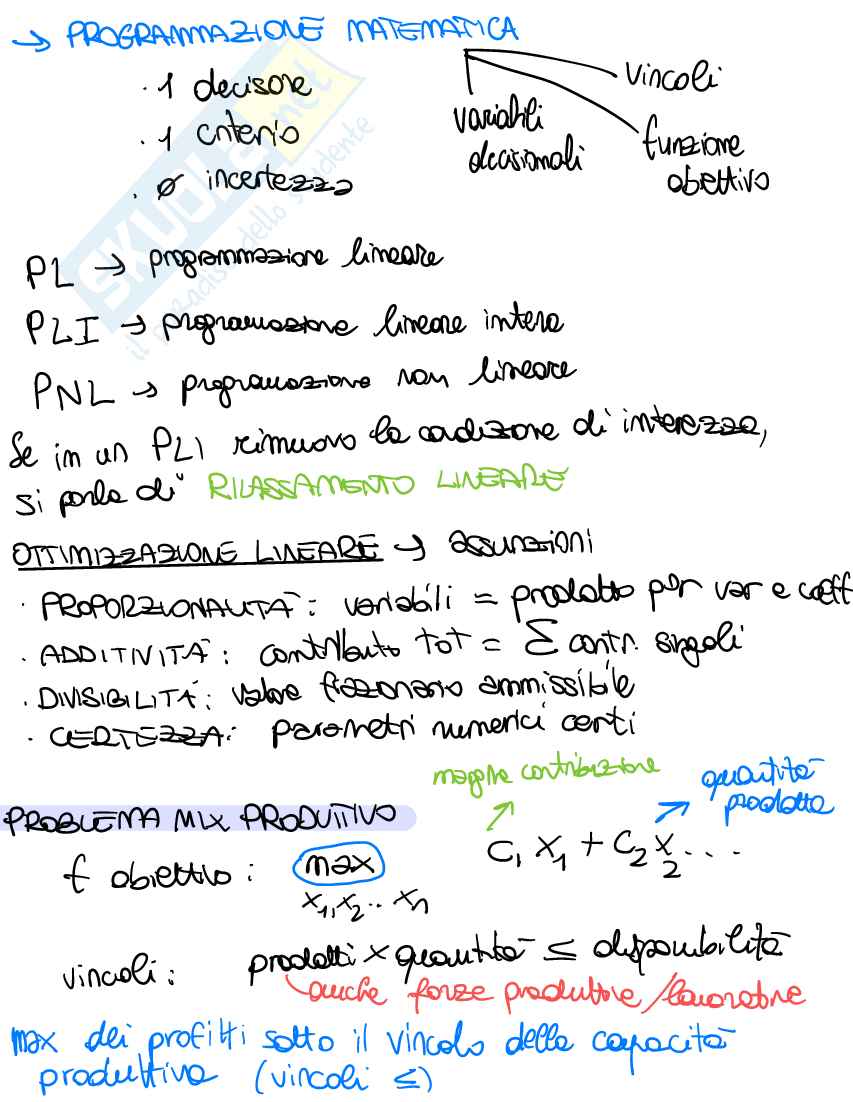 → PROGRAMMAZIONE MATEMATICA
· 1 decisore
· 1 criterio
· ø incertezza
variabili decisionali
vincoli
funzione obiettivo
SKUOLA.net
il paradiso dello studente
PL → programmazione lineare
PLI → programmazione lineare intera
PNL → programmazione non lineare
Se in un PLI rimuovo la condizione di interezza,
si parla di RILASSAMENTO LINEARE
OTTIMIZZAZIONE LINEARE → assunzioni
· PROPORZIONALITÀ: variabili = prodotto per var e coeff
· ADDITIVITÀ: contributo tot = Σ contr. singoli
· DIVISIBILITÀ: valore frazionario ammissibile
· CERTEZZA: parametri numerici certi
margine contribuzione
quantità prodotta
PROBLEMA MIX PRODUTTIVO
f obiettivo: max C₁ X₁ + C₂ X₂ ...
x₁, x₂ .. xₙ
vincoli: prodotti × quantità ≤ disponibilità
anche forze produttive/lavorative
max dei profitti sotto il vincolo della capacità
produttiva (vincoli ≤)